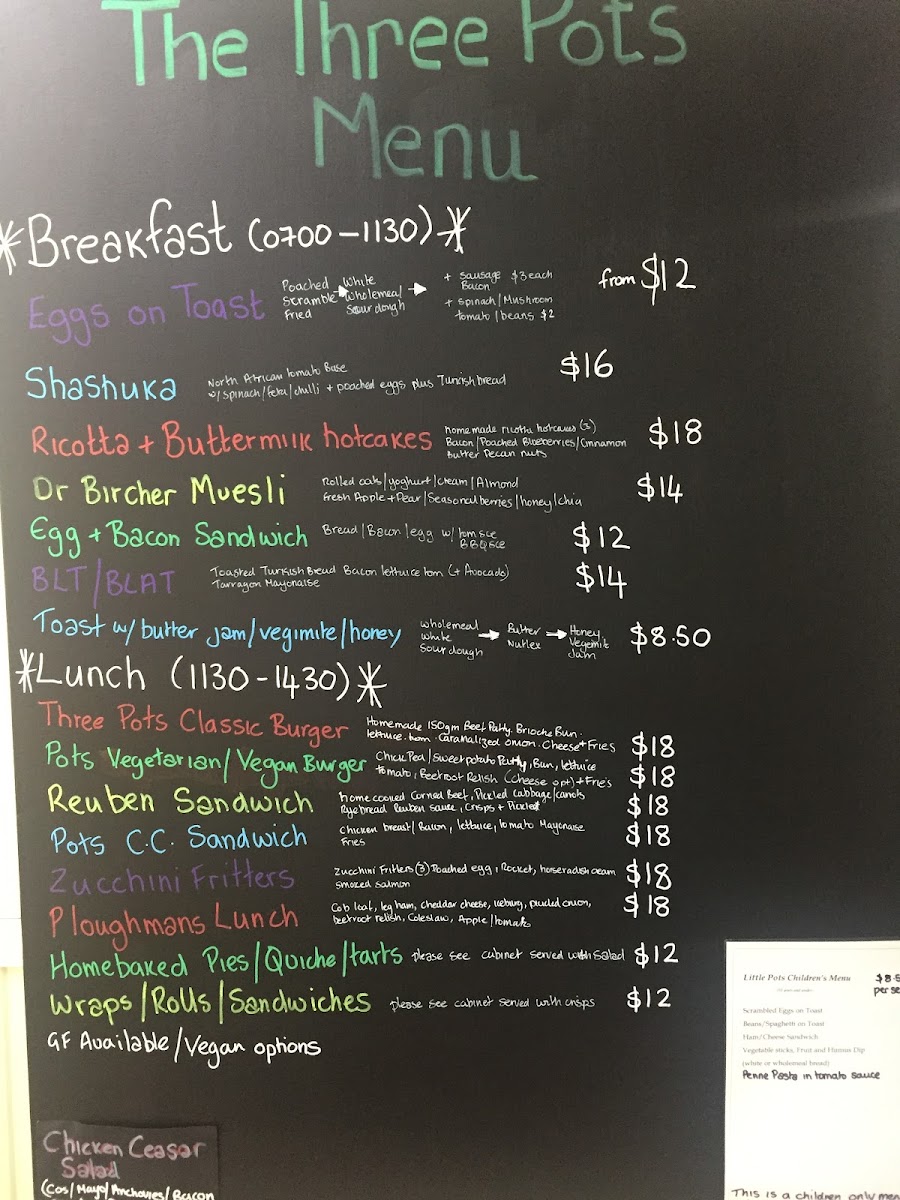 The Three Pots
Menu
*Breakfast (0700-1130)*
Eggs on Toast
Poached
Scramble
Fried
White
Wholemeal
Sourdough
+ sausage $3 each
Bacon
+ spinach/Mushroom
tomato/beans $2
from $12
Shashuka
North African tomato Base
w/spinach/feta/chulli + poached eggs plus Turkish bread
$16
Ricotta + Buttermilk hotcakes
homemade ricotta hotcakes (3)
Bacon/Poached Blueberries/Cinnamon
Butter Pecan nuts
$18
Dr Bircher Muesli
Rolled oats/yoghurt/cream/Almond
fresh Apple+Pear/Seasonal berries/honey/chia
$14
Egg + Bacon Sandwich
Bread/Bacon/egg w/tom sce
BBQ sce
$12
BLT/BLAT
Toasted Turkish Bread Bacon lettuice tom (+ Avocado)
Tarragon Mayonaise
$14
Toast w/butter jam/vegimite/honey
wholemeal
white
Sourdough
Butter
Nutlex
Honey
Vegemit
Jam
$8.50
*Lunch (1130-1430)*
Three Pots Classic Burger
Homemade 150gm Beef Patty. Brioche Bun.
lettuce. tom. Caramalized onion. Cheese + Fries
$18
Pots Vegetarian/Vegan Burger
ChickPea/Sweetpotato Patty, Bun, lettuce
tomato, Beetroot Relish (Cheese opt) + Fries
$18
Reuben Sandwich
home cooked Corned Beef, Pickled Cabbage/carrots
Ryebread Reuben sauce, Crisps + Pickle
$18
Pots C.C. Sandwich
Chicken breast/Bacon, lettuce, tomato Mayonaise
Fries
$18
Zucchini Fritters
Zucchini Fritters (3) Poached egg, Rocket, horseradish cream
Smoked salmon
$18
Ploughmans Lunch
Cob loaf, leg ham, cheddar cheese, iceburg, pickled onion,
beetroot relish, Coleslaw, Apple/tomato
$18
Homebaked Pies/Quiche/tarts please see cabinet served with salad $12
Wraps/Rolls/Sandwiches please see cabinet served with crisps $12
GF Available/Vegan options
Chicken Ceasar
Salad
(Cos/Mayo/Anchovies/Bacon
Little Pots Children's Menu
$8.5
per se
Scrambled Eggs on Toast
Beans/Spaghetti on Toast
Ham/Cheese Sandwich
Vegetable sticks, Fruit and Humus Dip
(white or wholemeal bread)
Penne Pasta in tomato sauce
This is a children only men